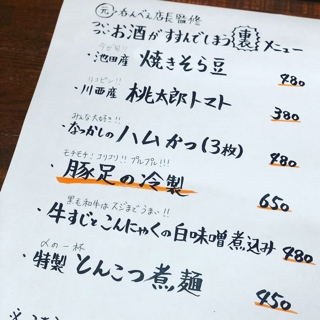 元 呑んべえ店長 監修
ついついお酒がすすんでしまう裏メニュー
・池田産 焼きそら豆 480
・川西産 桃太郎トマト 380
みんな大好き!!
・なつかしの ハムかつ(3枚) 480
モチモチ!コリコリ!!プルプル!!!
・豚足の冷製 650
黒毛和牛はスジまでうまい!!
・牛すじとこんにゃくの白味噌煮込み 480
〆の一杯
・特製 とんこつ煮麺 450